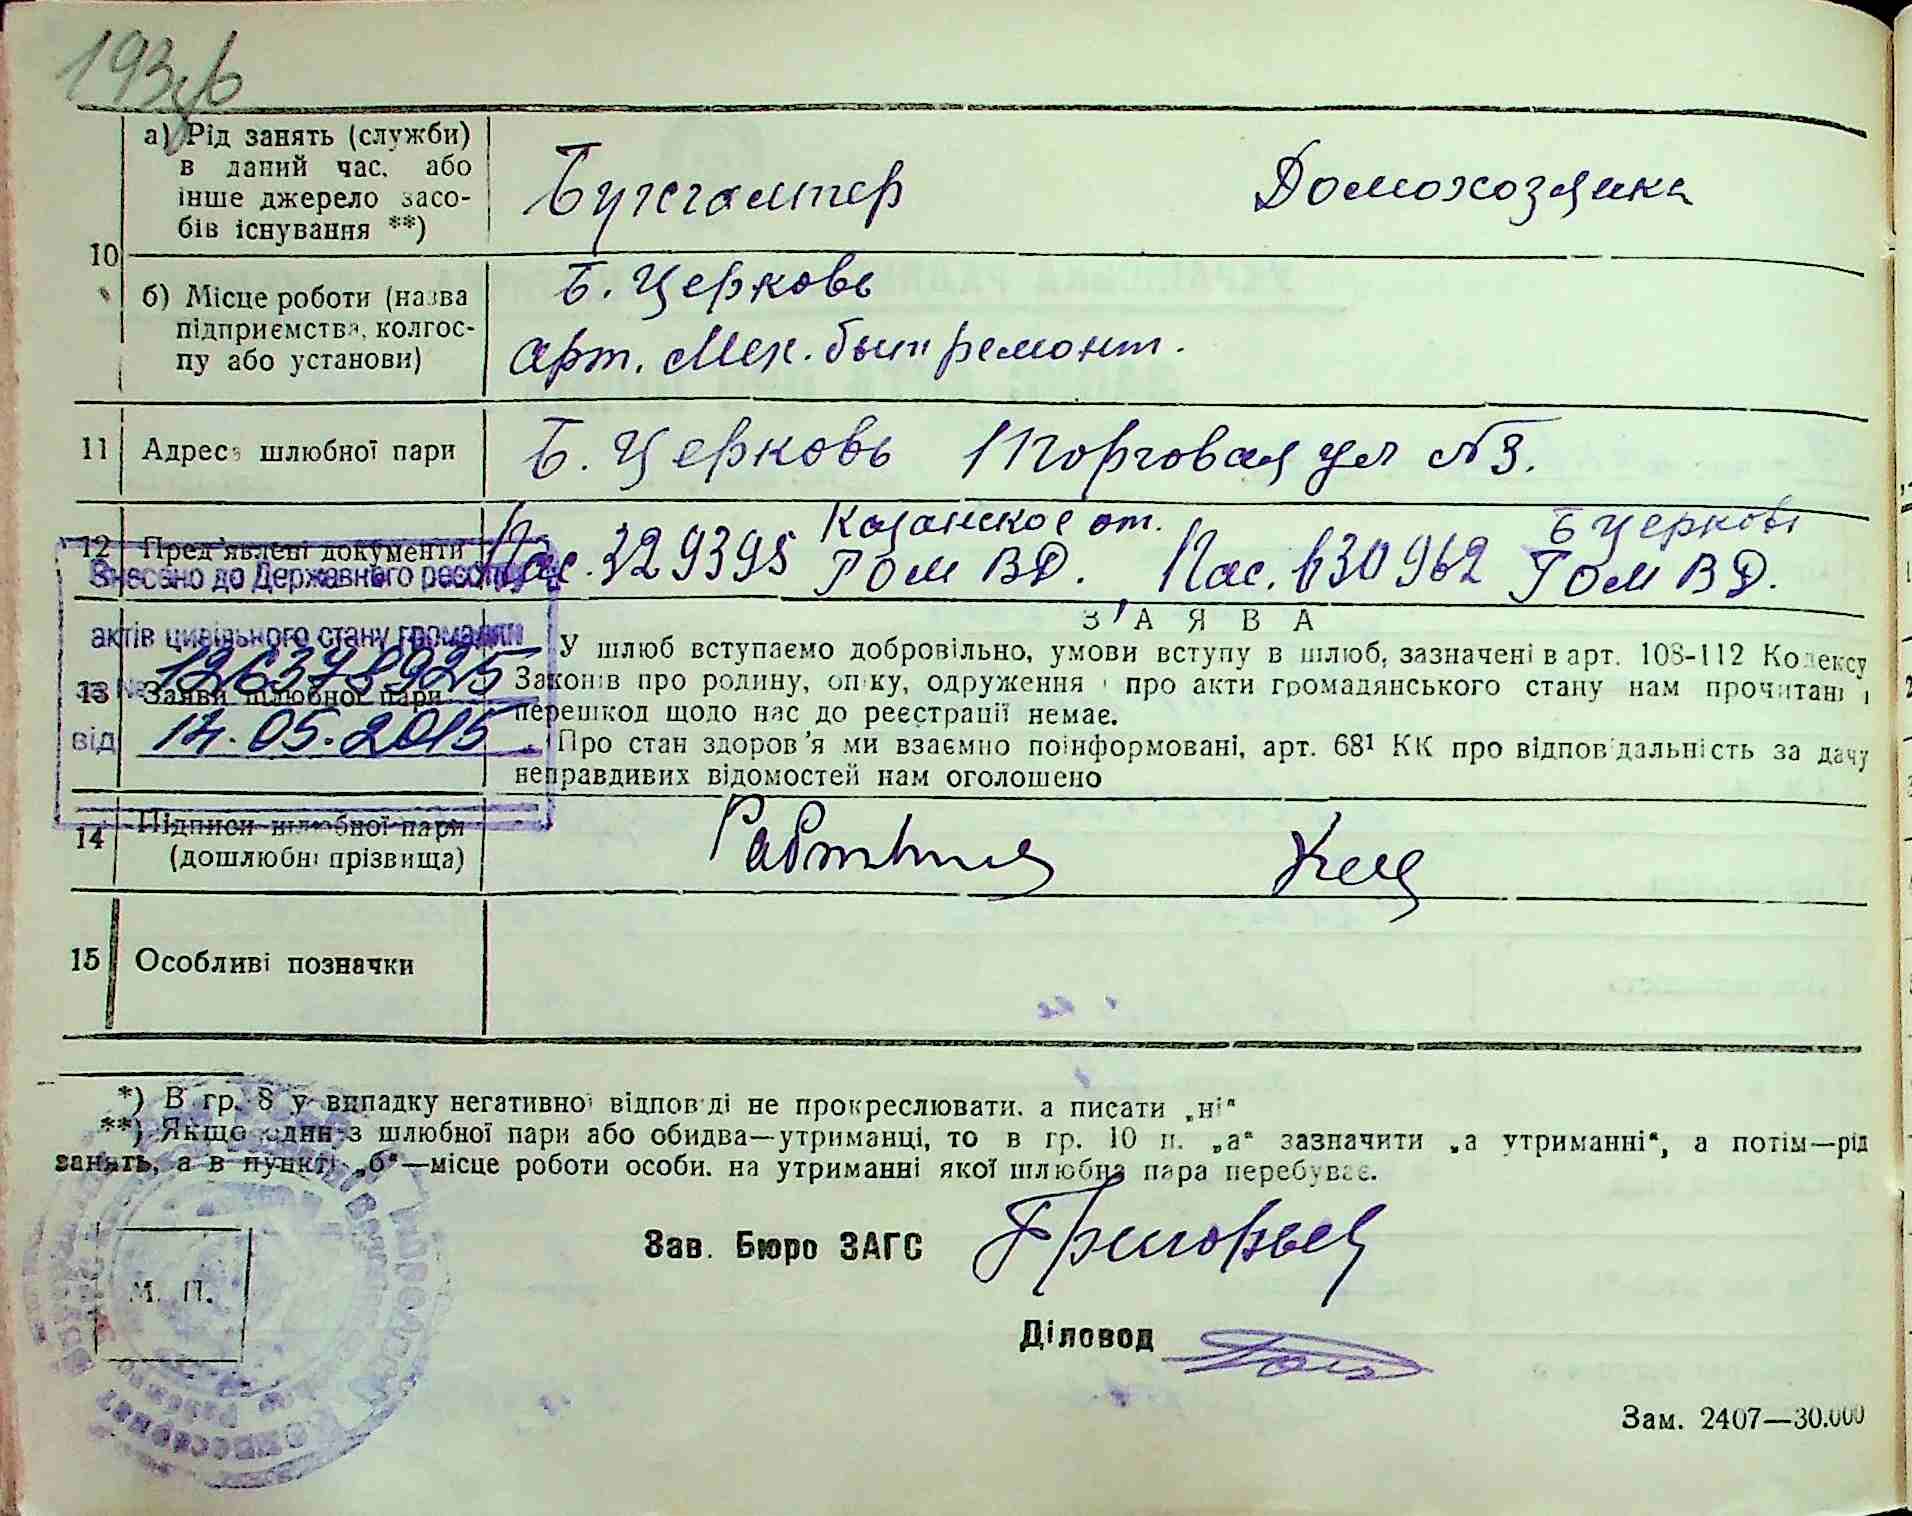 193
10
а) Рід занять (служби) в даний час, або інше джерело засобів існування **)
Бухгалтер
Домохозяика
б) Місце роботи (назва підприємства, колгоспу або установи)
Б. Церковь
арт. Мех. быт ремонт.
11 Адреса шлюбної пари
Б. Церковь Торговая ул №3.
12 Пред'явлені документи
Пас. 329395 Казанское от. ГОМ ВД.
Пас. 630962 Б Церковь ГОМ ВД.
Внесено до Державного реєстру
актів цивільного стану громадян
за № 1263789925
від 14.05.2015
13 Заяви шлюбної пари
З А Я В А
У шлюб вступаємо добровільно, умови вступу в шлюб, зазначені в арт. 108-112 Кодексу
Законів про родину, опіку, одруження і про акти громадянського стану нам прочитані і
перешкод щодо нас до реєстрації немає.
Про стан здоров'я ми взаємно поінформовані, арт. 68¹ КК про відповідальність за дачу
неправдивих відомостей нам оголошено
14 Підписи шлюбної пари
(дошлюбні прізвища)
15 Особливі позначки
*) В гр. 8 у випадку негативної відповіді не прокреслювати, а писати „ні“
**) Якщо один з шлюбної пари або обидва—утриманці, то в гр. 10 п. „а“ зазначити „а утриманні“, а потім—рід
занять, а в пункті „б“—місце роботи особи, на утриманні якої шлюбна пара перебуває.
Зав. Бюро ЗАГС
М. П.
Діловод
Зам. 2407—30.000